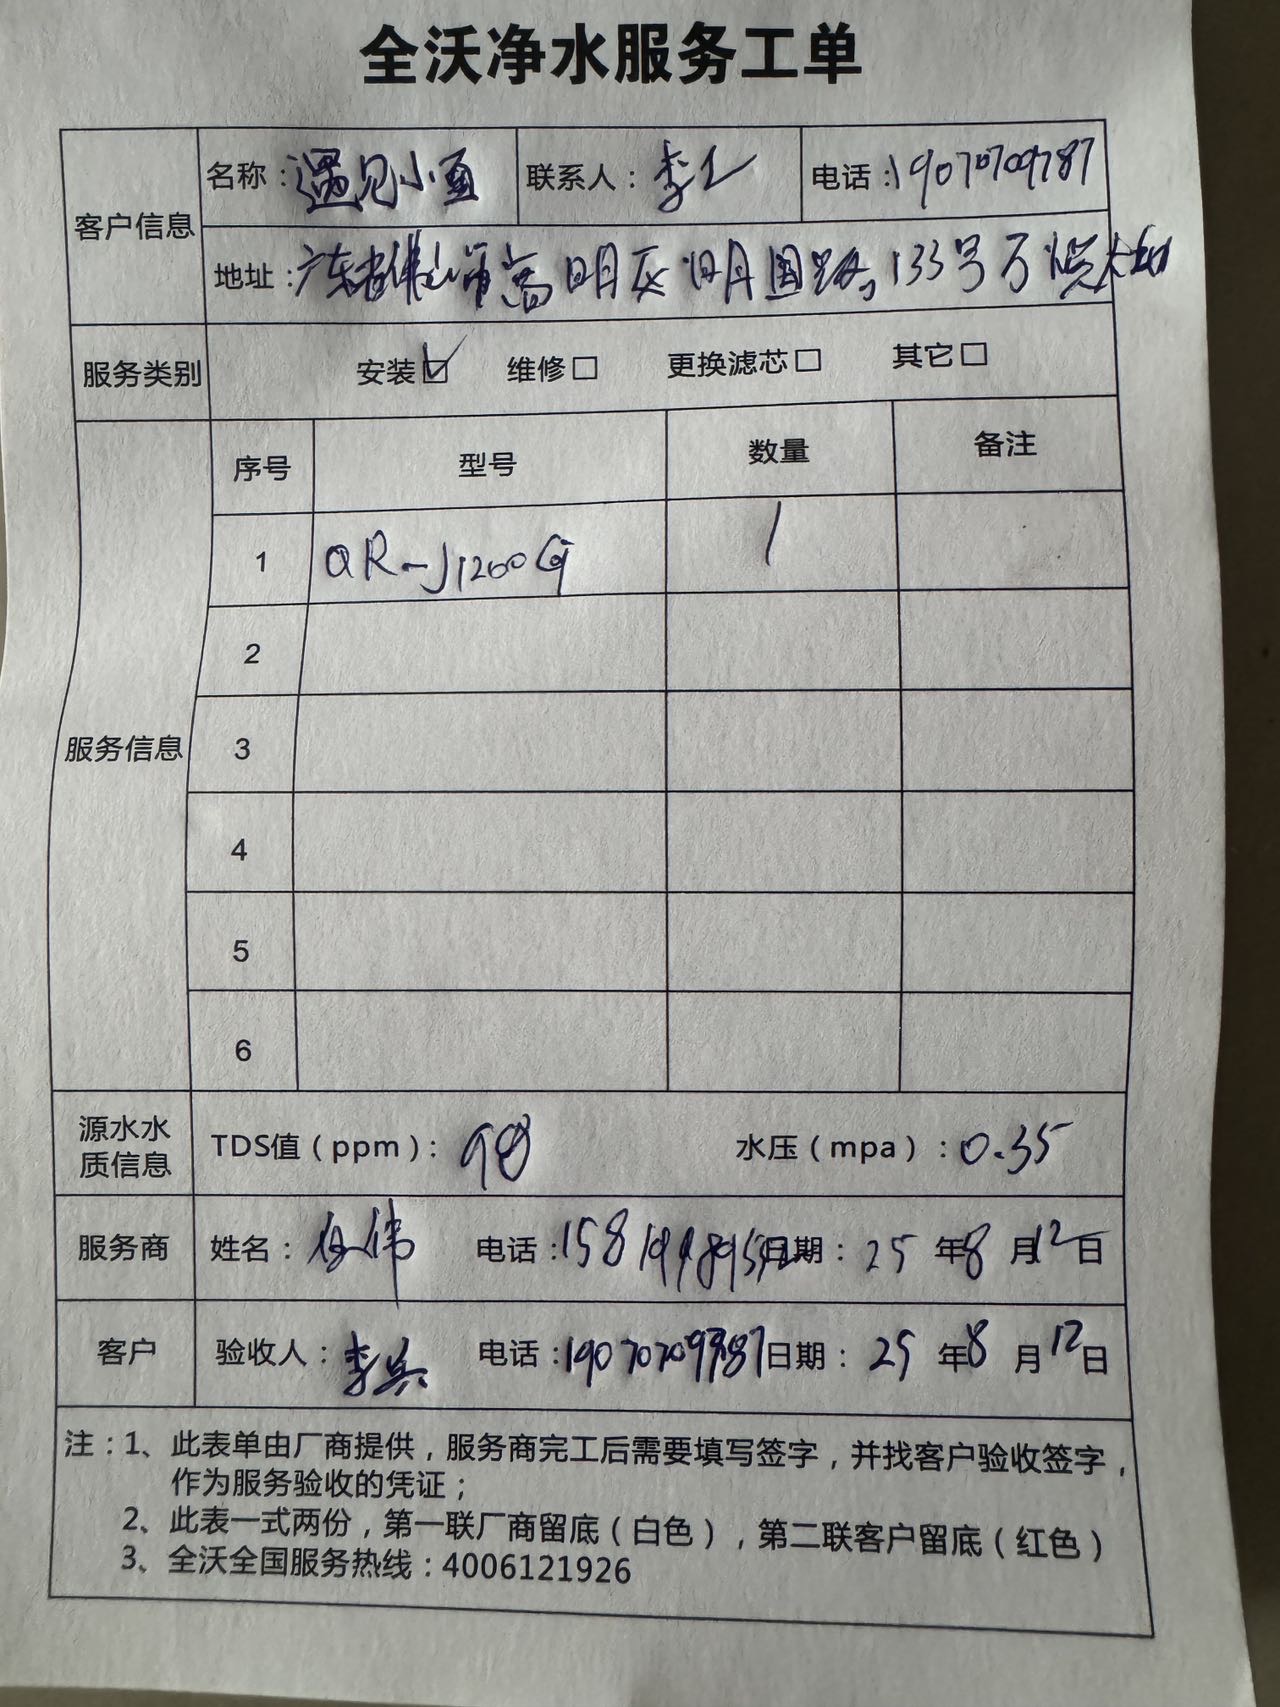 全沃净水服务工单
客户信息
名称：遇见小面 联系人：李工 电话：19070709787
地址：广东省佛山市高明区明国路133号万悦
服务类别 安装☑ 维修□ 更换滤芯□ 其它□
服务信息
序号 型号 数量 备注
1 QR-J1200G 1
2
3
4
5
6
源水水质信息 TDS值（ppm）：98 水压（mpa）：0.35
服务商 姓名：伟 电话： 日期：25年8月12日
客户 验收人：李兵 电话：19070709787 日期：25年8月12日
注：1、此表单由厂商提供，服务商完工后需要填写签字，并找客户验收签字，
作为服务验收的凭证；
2、此表一式两份，第一联厂商留底（白色），第二联客户留底（红色）
3、全沃全国服务热线：4006121926